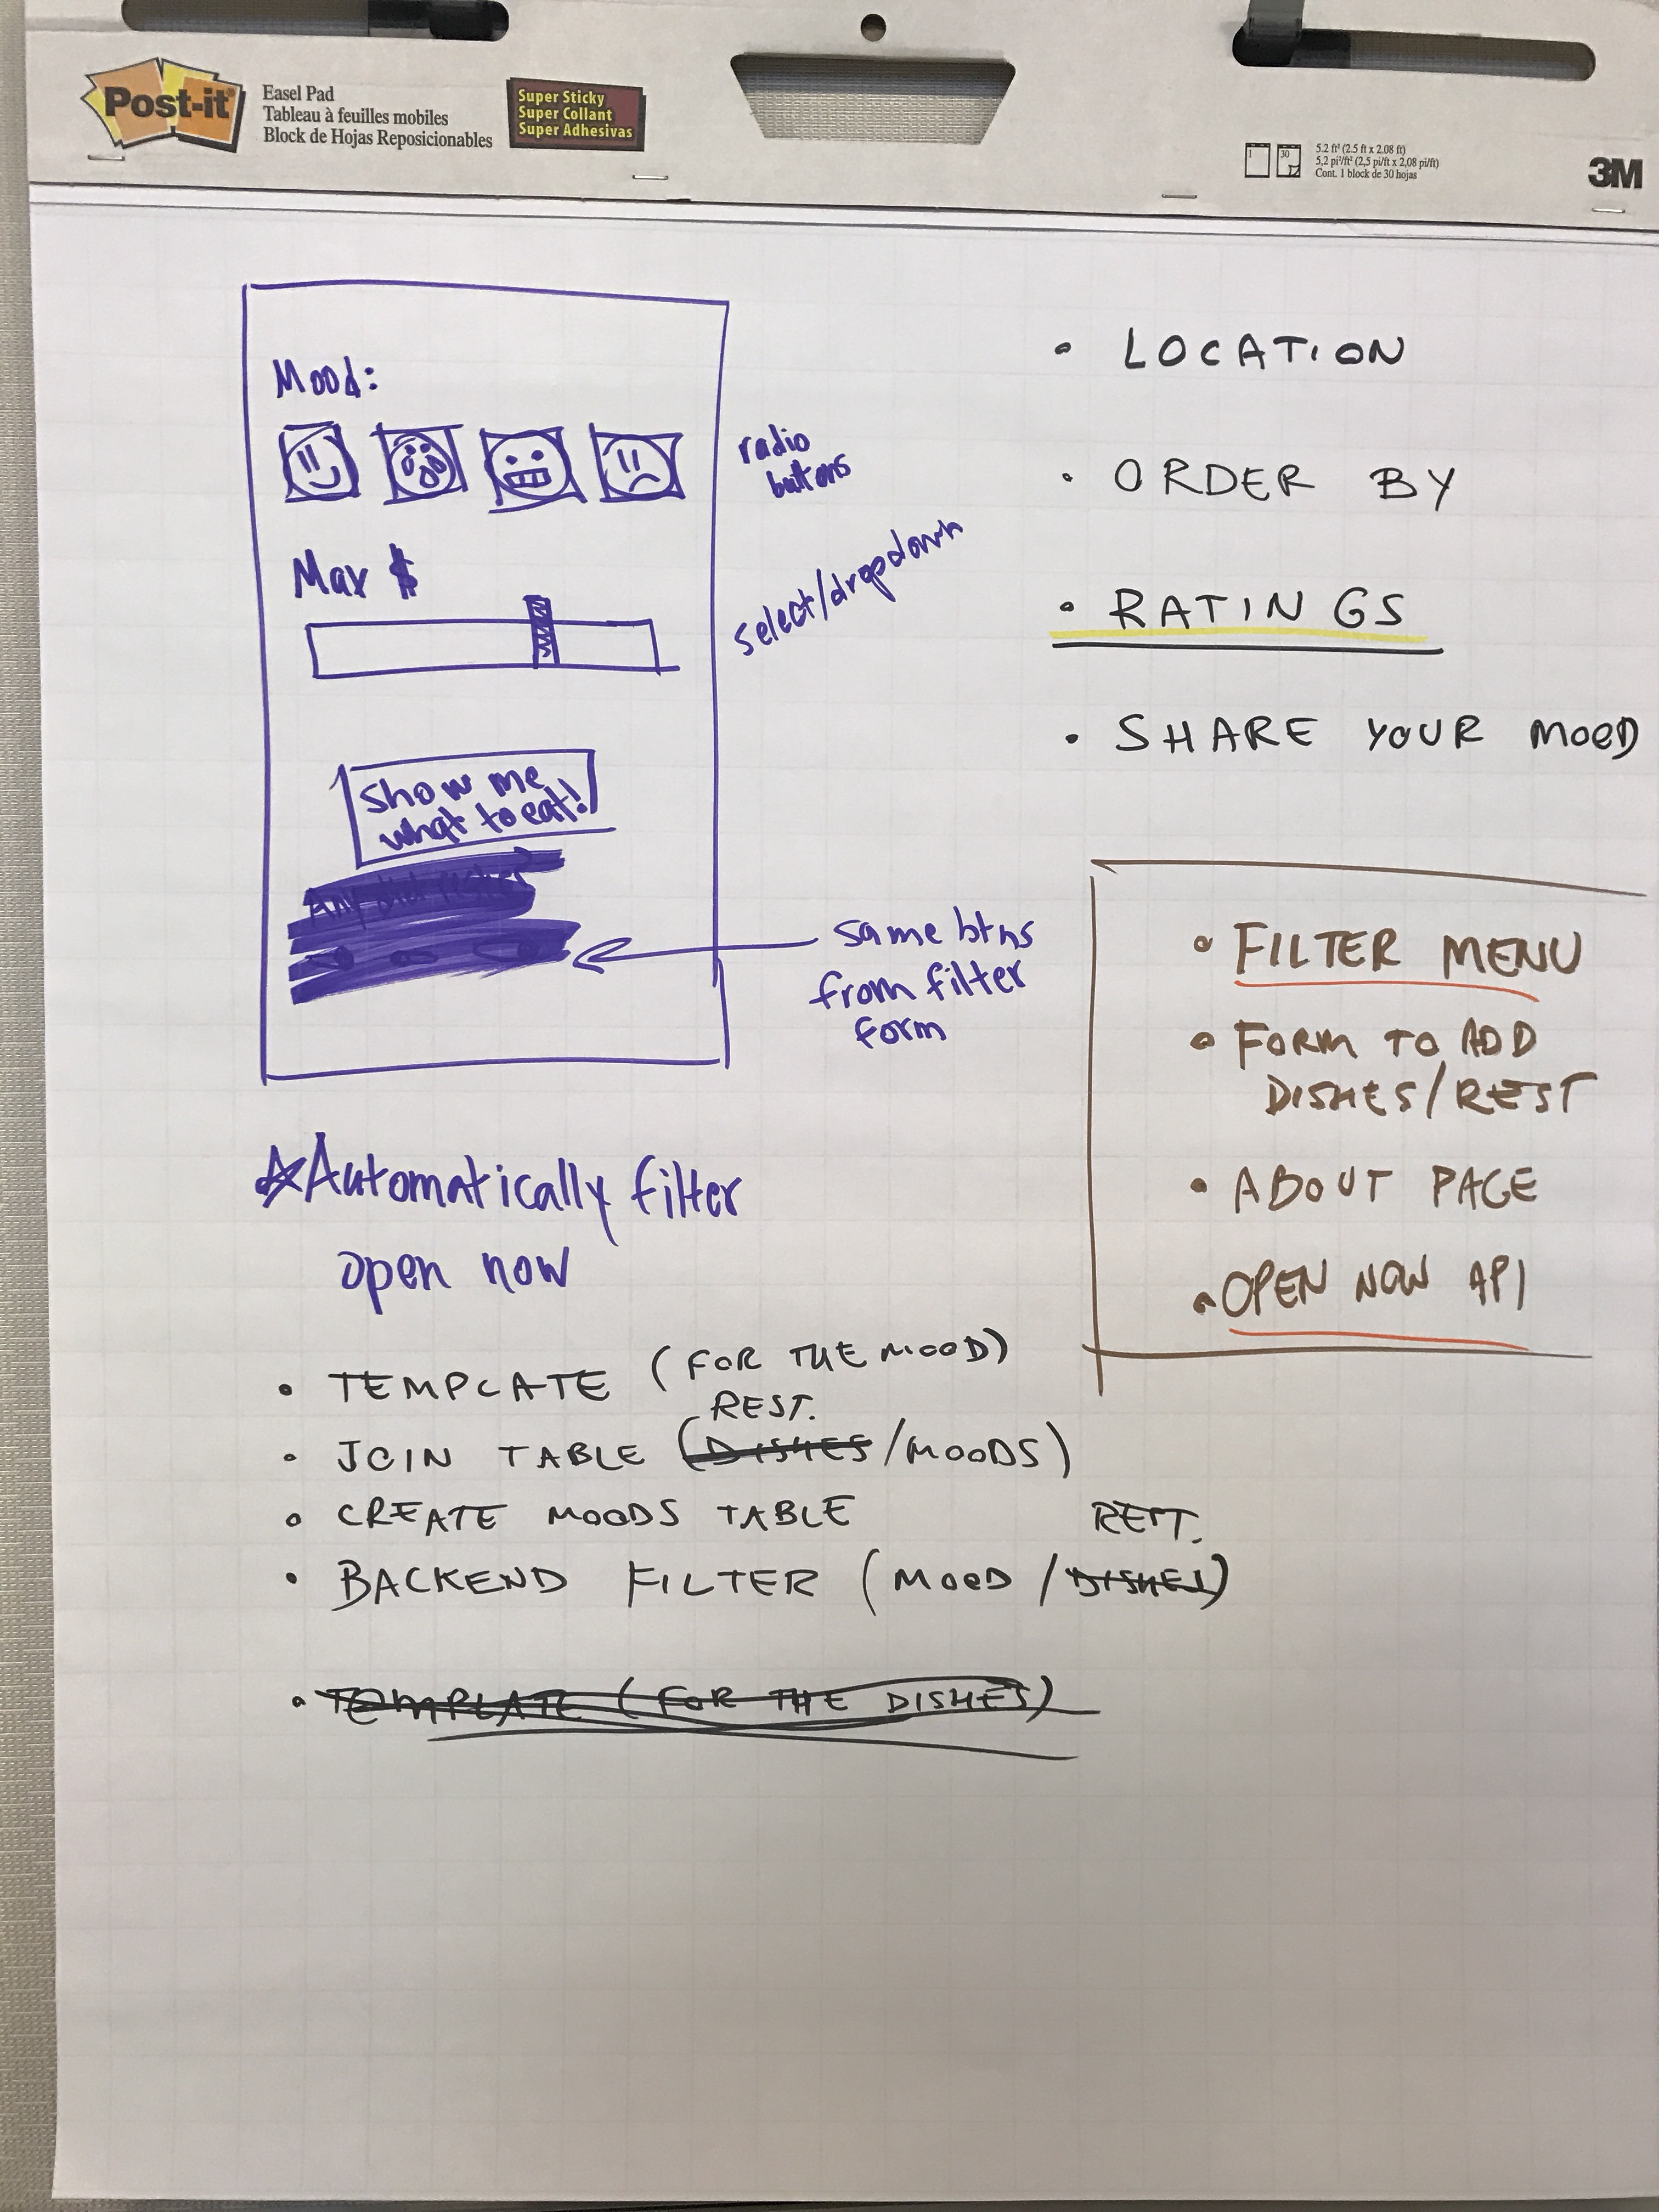 Post-it
Easel Pad
Tableau à feuilles mobiles
Block de Hojas Reposicionables
Super Sticky
Super Collant
Super Adhesivas
1
30
5.2 ft² (2.5 ft x 2.08 ft)
5,2 pi²/ft² (2,5 pi/ft x 2,08 pi/ft)
Cont. 1 block de 30 hojas
3M
Mood:
radio
buttons
Max $
select/dropdown
Show me
what to eat!
same btns
from filter
form
Automatically filter
open now
• LOCATION
• ORDER BY
• RATINGS
• SHARE YOUR MOOD
• FILTER MENU
• FORM TO ADD
DISHES/REST
• ABOUT PAGE
• OPEN NOW API
• TEMPLATE (FOR THE MOOD)
REST.
• JOIN TABLE (DISHES/MOODS)
• CREATE MOODS TABLE
REST.
• BACKEND FILTER (MOOD/DISHES)
• TEMPLATE (FOR THE DISHES)